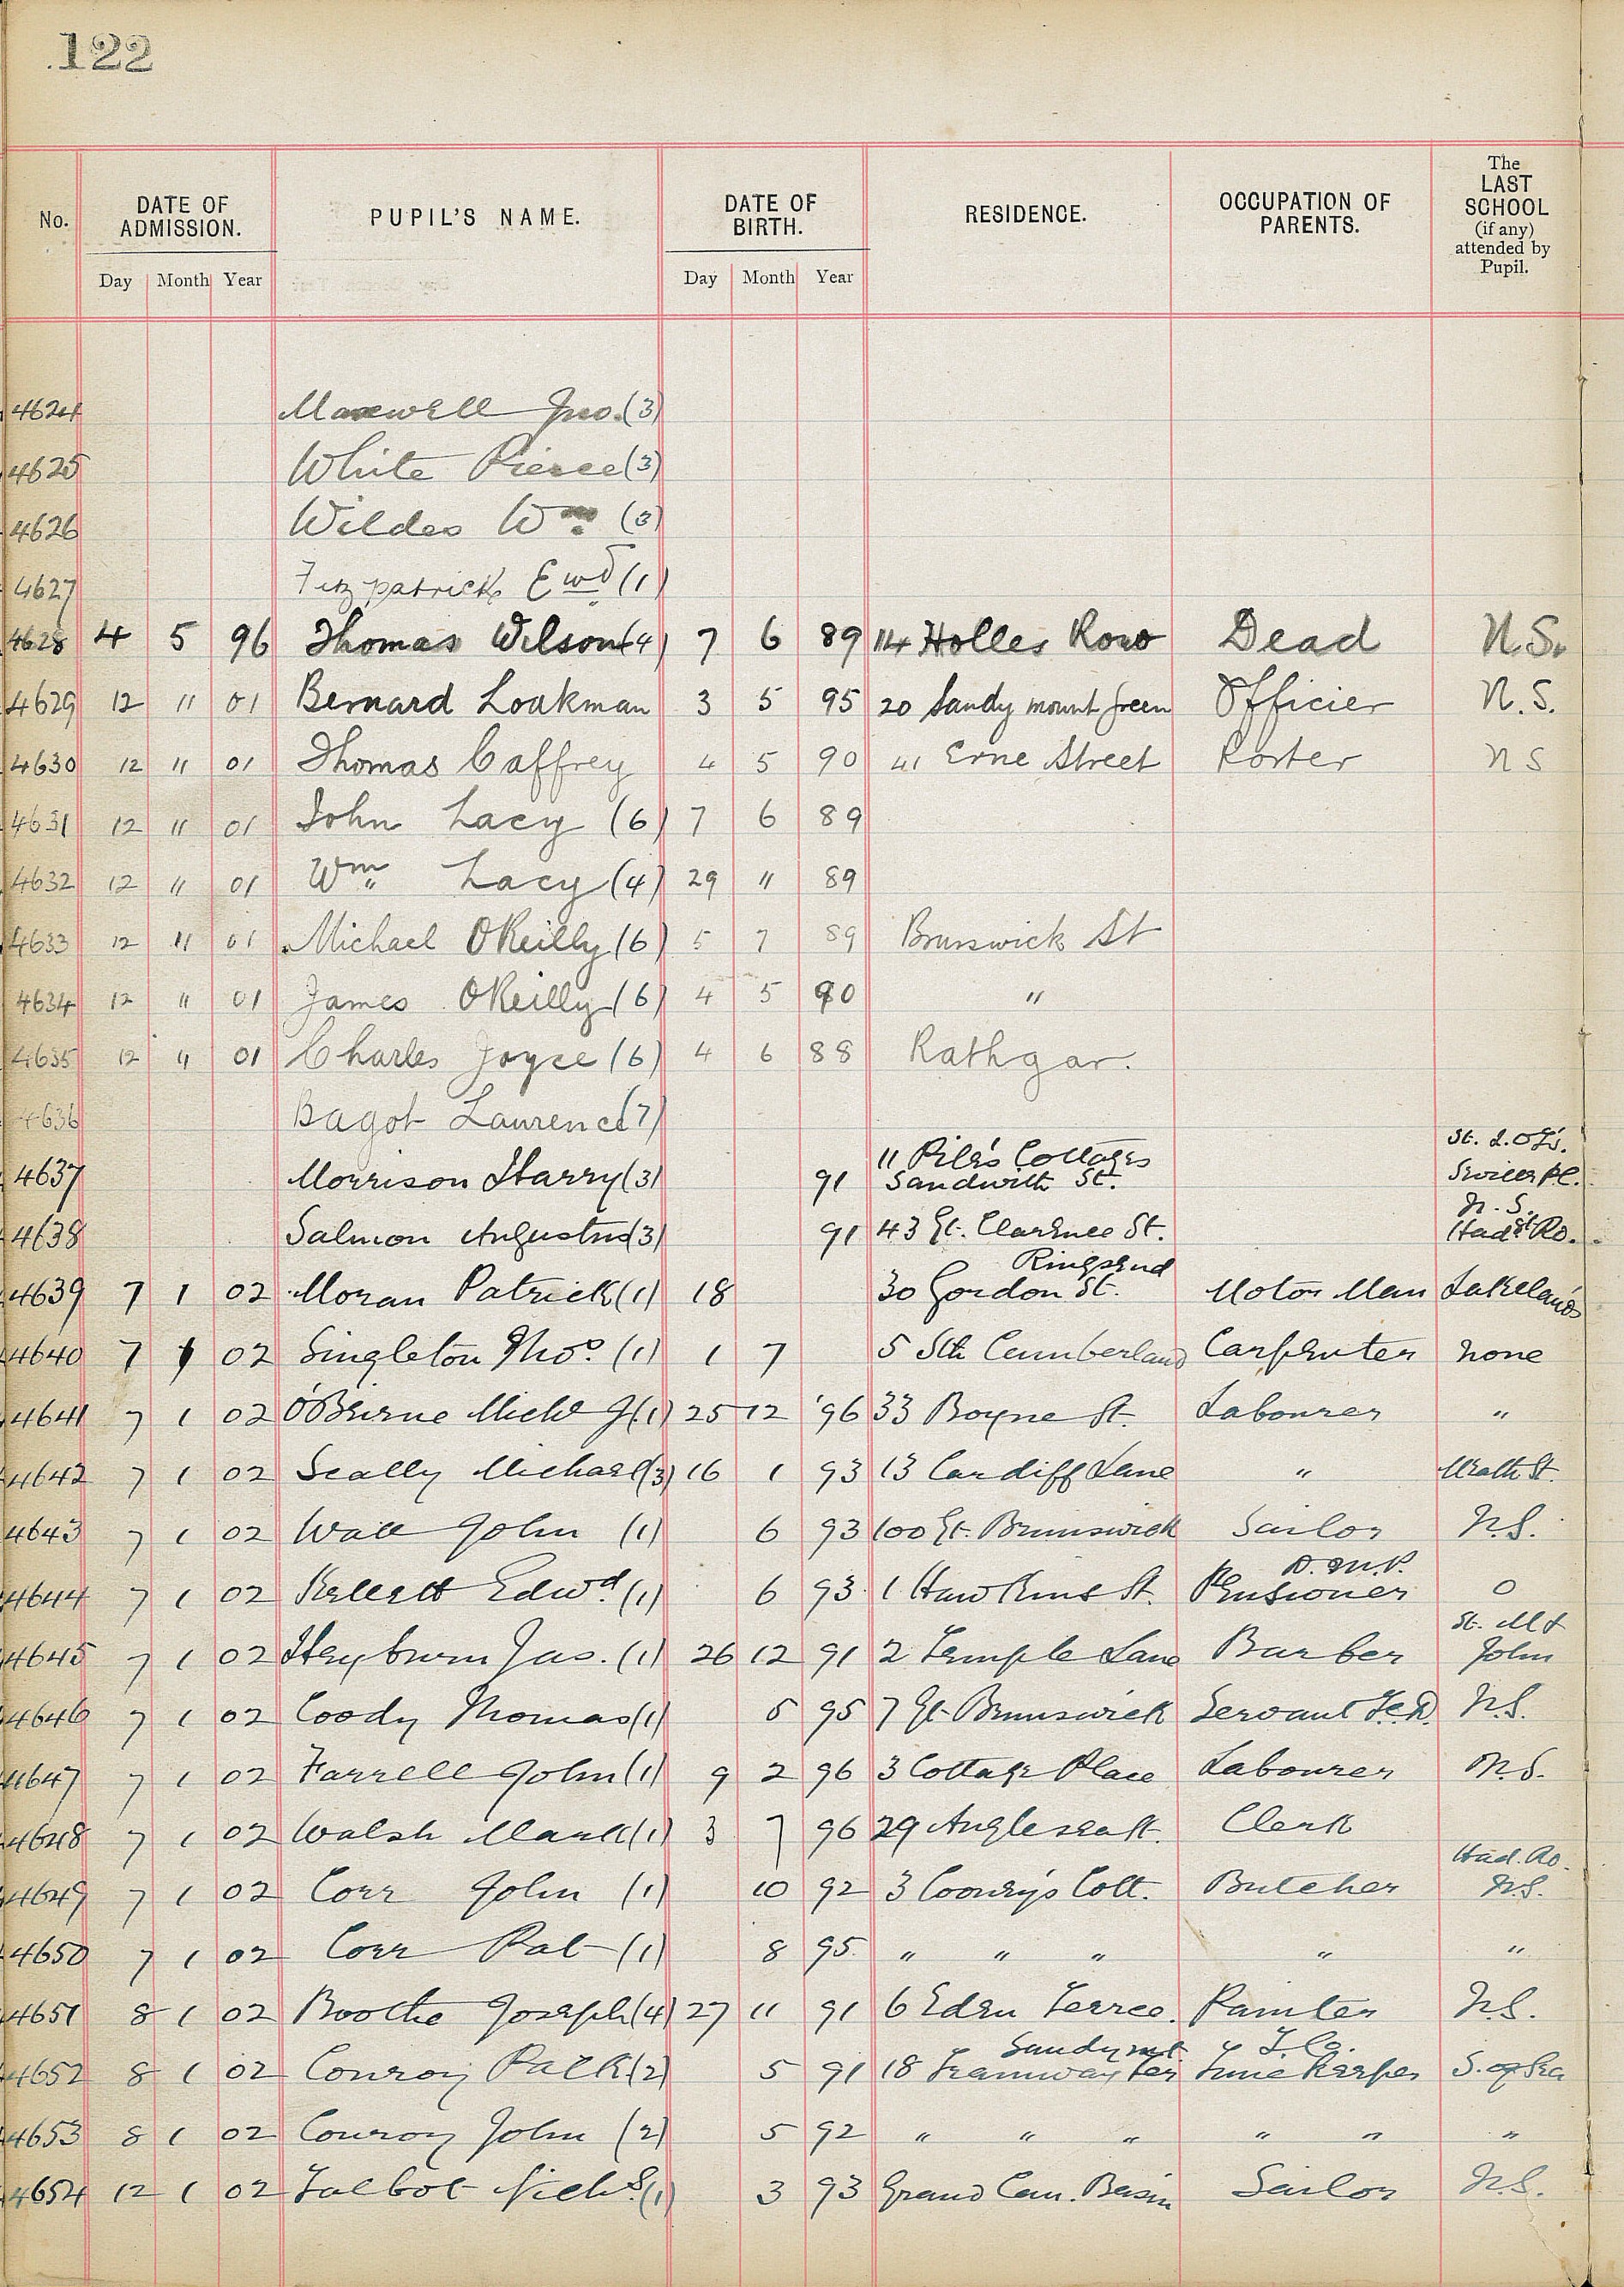 122
No. DATE OF ADMISSION. PUPIL'S NAME. DATE OF BIRTH. RESIDENCE. OCCUPATION OF PARENTS. The LAST SCHOOL (if any) attended by Pupil.
Day Month Year Day Month Year
4624 Maxwell Jno. (3)
4625 White Pierce (3)
4626 Wildes Wm (3)
4627 Fitzpatrick Ewd (1)
4628 4 5 96 Thomas Wilson (4) 7 6 89 114 Holles Row Dead N.S.
4629 12 " 01 Bernard Loakman 3 5 95 20 Sandymount Green Officier N.S.
4630 12 " 01 Thomas Caffrey 4 5 90 41 Erne Street Porter N S
4631 12 " 01 John Lacy (6) 7 6 89
4632 12 " 01 Wm Lacy (4) 29 " 89
4633 12 " 01 Michael OReilly (6) 5 7 89 Brunswick St
4634 12 " 01 James OReilly (6) 4 5 90 "
4635 12 " 01 Charles Joyce (6) 4 6 88 Rathgar.
4636 Bagot Laurence (7)
4637 Morrison Harry (3) 91 11 Pile's Cottages Sandwith St.
4638 Salmon Augustus (3) 91 43 Gt. Clarence St. N.S. Hadd Ro.
4639 7 1 02 Moran Patrick (1) 18 30 Gordon St. Ringsend Motor Man Lakelands
4640 7 1 02 Singleton Thos. (1) 1 7 5 Sth Cumberland Carpenter none
4641 7 1 02 O'Beirne Michl J (1) 25 12 '96 33 Boyne St. Labourer "
4642 7 1 02 Scally Michael (3) 16 1 93 13 Cardiff Lane "
4643 7 1 02 Wall John (1) 6 93 100 Gt. Brunswick Sailor N.S.
4644 7 1 02 Kellett Edwd. (1) 6 93 1 Hawkins St. D.M.P. Pensioner 0
4645 7 1 02 Heyburn Jas. (1) 26 12 91 2 Temple Lane Barber St. M & John
4646 7 1 02 Coody Thomas (1) 5 95 7 Gt. Brunswick Servant N.S.
4647 7 1 02 Farrell John (1) 9 2 96 3 Cottage Place Labourer N.S.
4648 7 1 02 Walsh Mark (1) 3 7 96 29 Anglesea St. Clerk
4649 7 1 02 Corr John (1) 10 92 3 Cooney's Cott. Butcher Had. Ro. N.S.
4650 7 1 02 Corr Pat (1) 8 95 " " " " "
4651 8 1 02 Boothe Joseph (4) 27 11 91 6 Eden Terrce. Painter N.S.
4652 8 1 02 Conroy Patk. (2) 5 91 18 Tramway Ter Sandymt T. Co. Time Keeper S. of Sea
4653 8 1 02 Conroy John (2) 5 92 " " " " " "
4654 12 1 02 Talbot Nichs. (1) 3 93 Grand Can. Basin Sailor N.S.